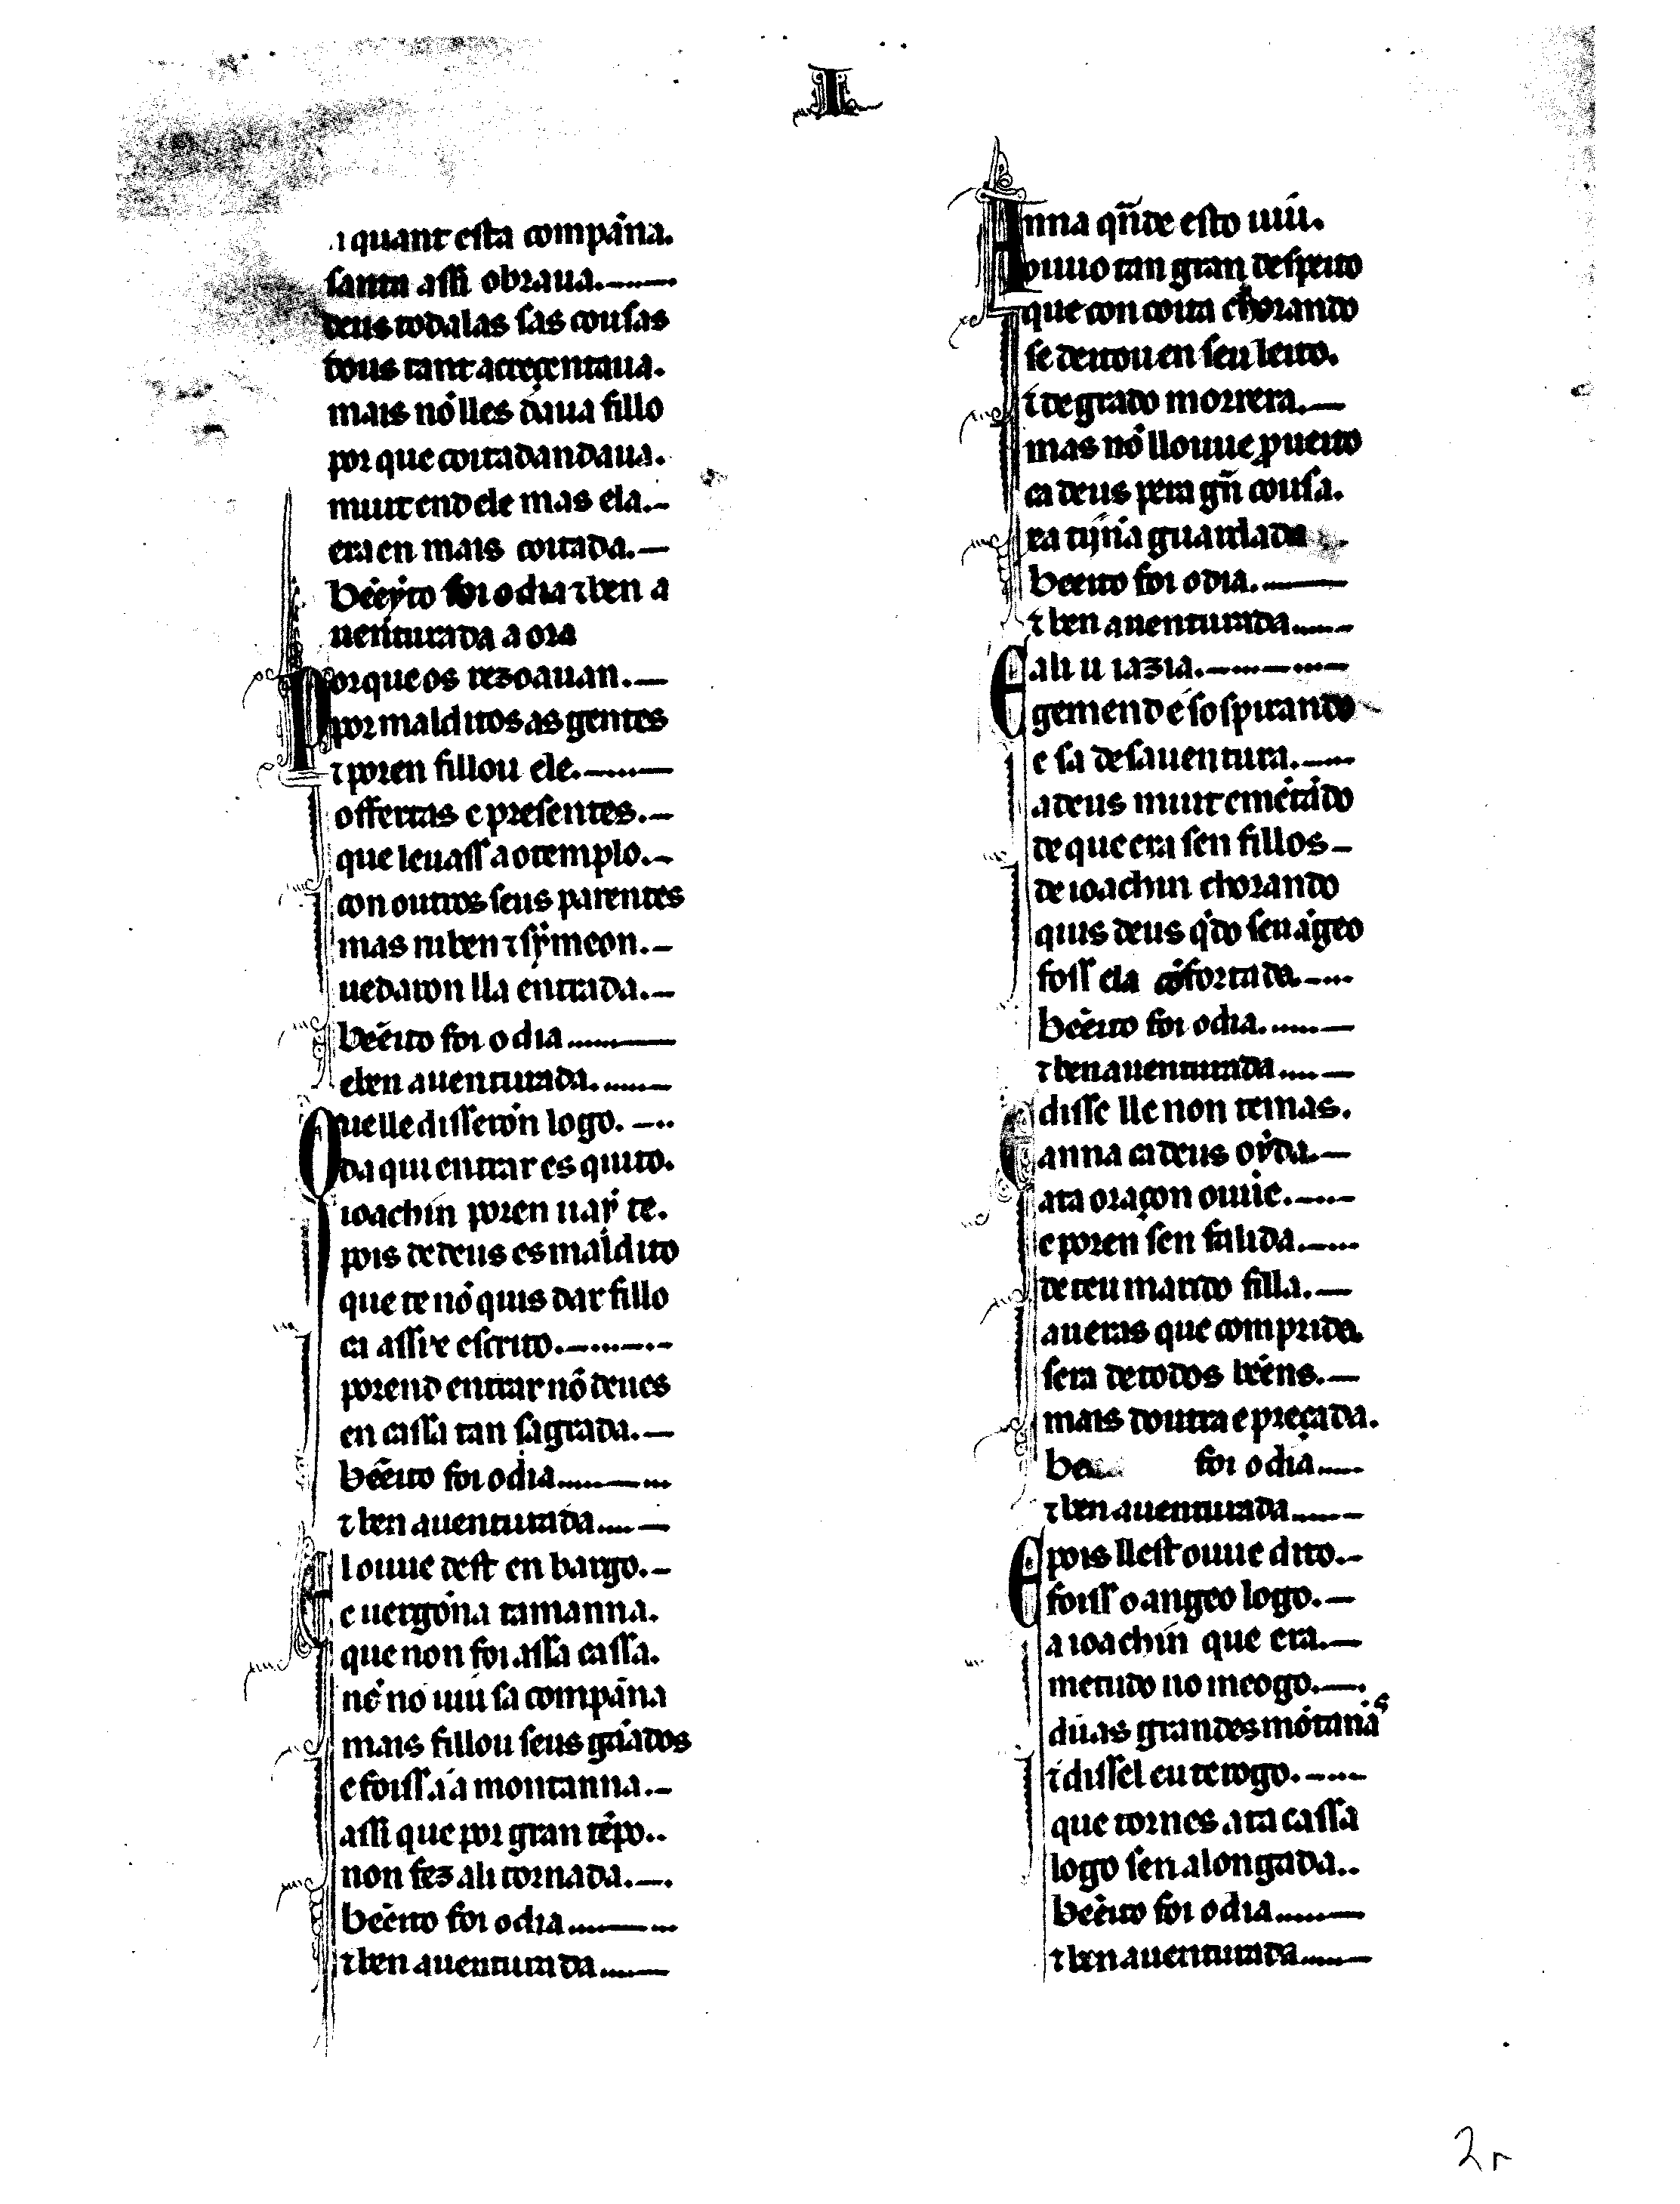 I
a quant esta compãna.
santa assi obraua.
deus todalas sas cousas
tous tant acreçentaua.
mais nõ lles daua fillo
por que coitadandaua.
muit end ele mas ela.
era en mais coitada.
bẽeyto foi o dia ⁊ ben a
uenturada a ora
Porque os rezõauan.
por malditos as gentes
⁊ poren fillou ele.
offertas e presentes.
que leuass ao templo.
con outros seus parentes
mas ruben ⁊ sẏmeon.
uedaron lla entrada.
bẽeito foi o dia
e ben auenturada.
Quelle disserõn logo.
da qui entrar es quito.
ioachin poren uaẏ te.
pois de deus es maldito
que te nõ quis dar fillo
ca assi ⁊e escrito.
porend entrar nõ deues
en cassa tan sagrada.
bẽeito foi o dia
⁊ ben auenturada
El ouue dest en bargo.
e uergõna tamanna.
que non foi assa cassa.
nẽ no uiu sa compãna
mais fillou seus gãados
e foiss a á montanna.
assi que por gran tẽpo..
non fez ali tornada.
bẽeito foi o dia
⁊ ben auenturada
Anna qñde esto uiu.
ouuo tan gran despeito
que con coita chorando
se deitou en seu leito.
⁊ de grado morrera.
mas nõ llouue ꝓueito
ca deus pera gñ cousa.
ra tijña guardada
beeito foi o dia.
⁊ ben auenturada
E ali u iazia.
gemend e sospirando
e sa desauentura.
a deus muit emẽtãdo
de que era sen fillos
de ioachin chorando
quis deus q̇do seu ãgeo
foss ela cõfortada
bẽeito foi o dia.
⁊ ben auenturada
E disse lle non temas.
anna ca deus oẏda.
ata oraçon ouue.
e poren sen falida.
de teu marido filla.
aueras que comprida
sera de todos bẽens.
mais doutra e preçada.
be foi o dia
⁊ ben auenturada
E pois llest ouue dito.
foiss o angeo logo.
a ioachin que era.
metudo no meogo.
dũas grandes mõtanãs
⁊ dissel eu te rogo.
que tornes ata cassa
logo sen alongada..
bẽeito foi o dia
⁊ ben auenturada
2r